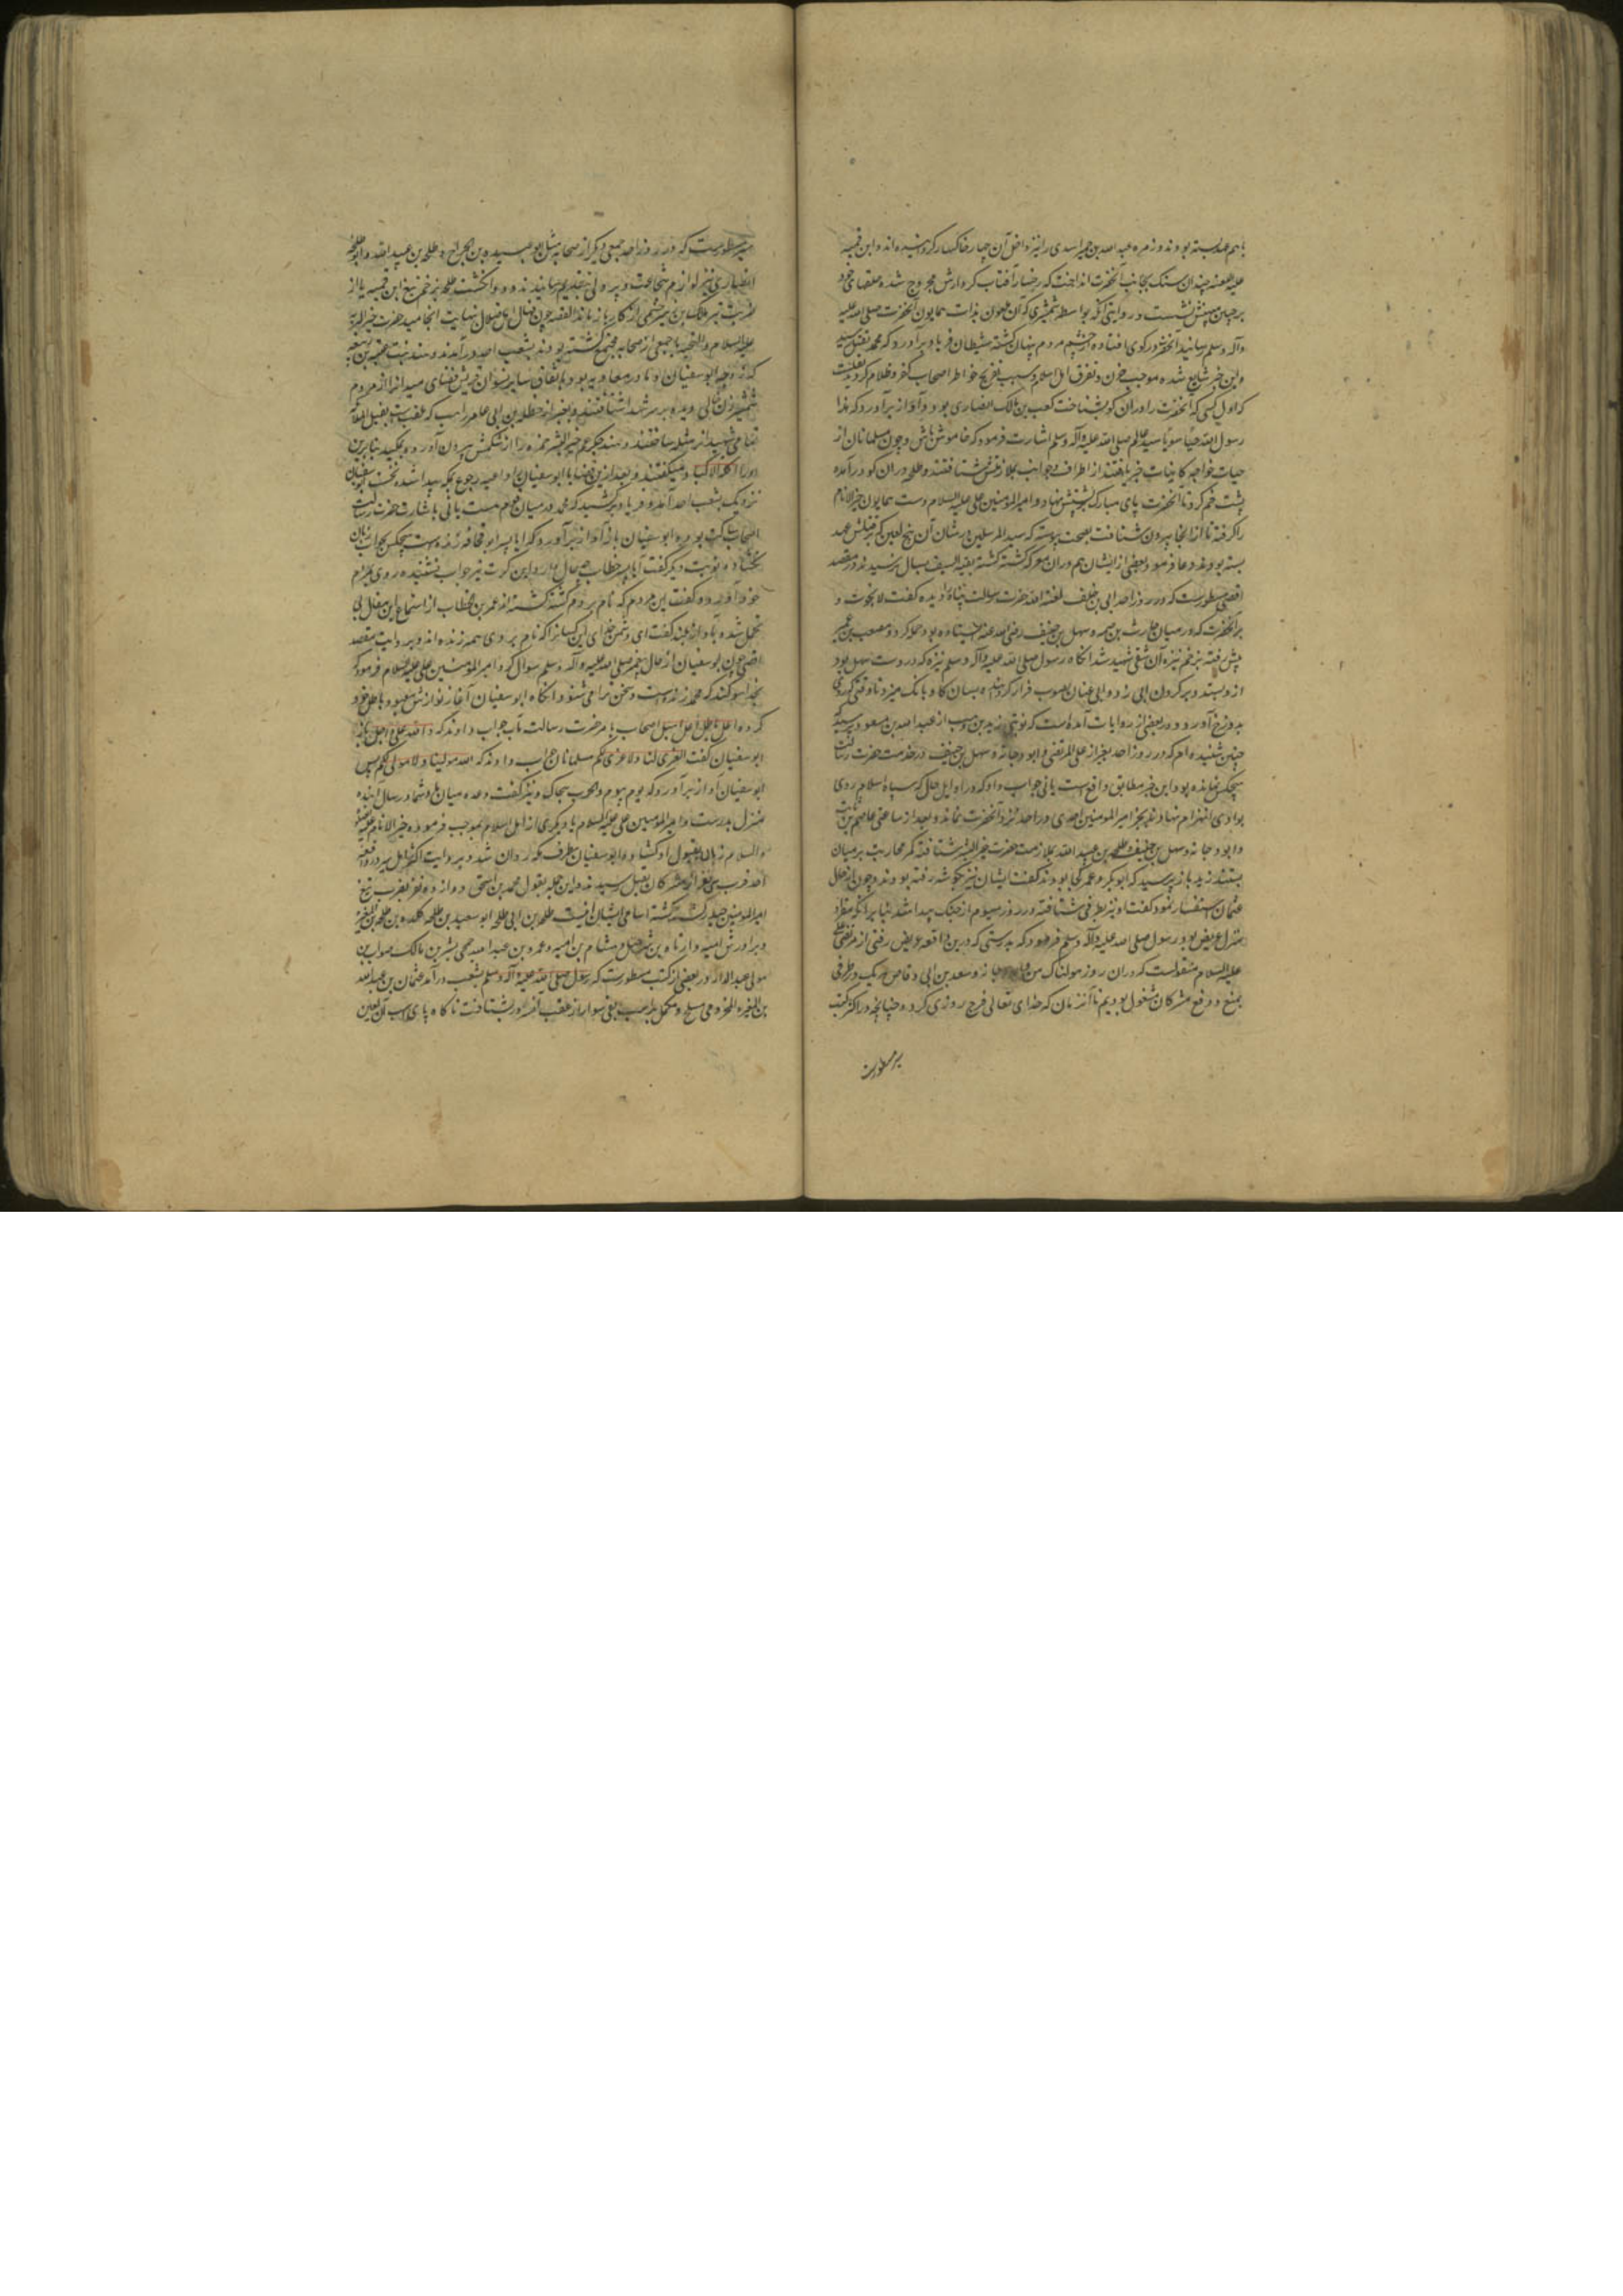 باهم عهد بسته بودند و زمره عبد الله بن حمید اسدی را نیز داخل آن چهار خاکسار کرده‌اند و این قمیه
علیه اللعنه چندان سنگ بجانب آنحضرت انداخت که رخسار آفتاب کردارش مجروح شد و حلقهای خود
بر جبین مبینش نشست و روایتی آنکه بواسطه شمشیری که آن ملعون بذات همایون آنحضرت صلی الله علیه
وآله وسلم رسانید آنحضرت در کوی افتاده از چشم مردم پنهان گشته شیطان فریاد برآورد که محمد بقتل رسید
و این خبر شایع شده موجب حزن و تفرق اهل اسلام و سبب تفریح خواطر اصحاب کفر و ظلام گردید نقلست
که اول کسی که آنحضرت را در آن کو بشناخت کعب بن مالک انصاری بود و آواز برآورد که هذا
رسول الله حیا سویا سید عالم صلی الله علیه وآله وسلم اشارت فرمود که خاموش باش و چون مسلمانان از
حیات خواجه کاینات خبر یافتند از اطراف و جوانب بملازمتش شتافتند و طلحه در آن کو درآمده
پشت خم کرد تا آنحضرت پای مبارک بر پشتش نهاد و امیر المومنین علی علیه السلام دست همایون خیر الانام
را گرفته تا از انجا بیرون شتافت بصحت پیوسته که سید المرسلین در شان آن پنج لعین که بر قتلش عهد
بسته بودند دعا فرمود و بعضی از ایشان هم در آن معرکه کشته گشته بقیه السیف بسال نرسیدند و در مقصد
اقصی مسطورست که در روز احد ابی بن خلف لعنه الله حضرت رسالت پناه را دیده گفت لا نجوت و
بر آنحضرت که در میان حارث بن صمه و سهل بن حنیف رضی الله عنه ایستاده بود حمله کرد و مصعب بن عمیر
پیش رفته بزخم نیزه آن شقی شهید شد انگاه رسول صلی الله علیه وآله وسلم نیزه که در دست سهل بود
ازو بستد و بر گردن ابی زد و ابی عنان بصوب فرار گردانیده بسان گاو بانگ میزد تا وقتی که روی
بدوزخ آورد و در بعضی از روایات آمده است که نوبتی زید بن وهب از عبد الله بن مسعود پرسید که
چنین شنیده‌ام که در روز احد بغیر از علی المرتضی و ابو دجانه و سهل بن حنیف در خدمت حضرت رسالت
هیچکس نمانده بود این خبر مطابق واقع است یا نی جواب داد که در اوایل حال که سپاه اسلام روی
بوادی انهزام نهادند بجز امیر المومنین احدی در احد نزد آنحضرت نماند و بعد از ساعتی عاصم بن ثابت
و ابو دجانه و سهل بن حنیف و طلحه بن عبید الله بملازمت حضرت خیر البشر شتافته کمر محاربت بر میان
بستند زید باز پرسید که ابوبکر و عمر کجا بودند گفت ایشان نیز بگوشه رفته بودند و چون از حال
عثمان استفسار نمود گفت او نیز بطرفی شتافته در روز سیوم از جنگ پیدا شد بنا بر آنکه مقر او
منزل عریض بود رسول صلی الله علیه وآله وسلم فرمود که بدرستی که درین واقعه عریض رفتی از مرتضی علی
علیه السلام منقولست که در آن روز هولناک من و ابو دجانه و سعد بن ابی وقاص هر یک در طرفی
بمنع و دفع مشرکان مشغول بودیم تا آنزمان که خدای تعالی فرج روزی کرد و چنانچه در اکثر کتب
سیر مسطورست
سیر مسطورست که در روز احد جمعی دیگر از صحابه مثل ابو عبیده بن الجراح و طلحه بن عبید الله و ابو طلحه
انصاری نیز لوازم شجاعت و پردلی بتقدیم رسانیدند و دو انگشت طلحه بزخم تیغ ابن قمیه یا از
ضربت تیر مالک بن زهیر جشمی از کار باز ماند القصه چون قتال اهل ضلال بنهایت انجامید حضرت خیر البریه
علیه السلام والتحیه با جمعی از صحابه مجتمع گشته بودند بشعب احد درآمدند و هند بنت عتبه بن ربیعه
که زوجه ابو سفیان و مادر معاویه بود باتفاق سایر نسوان قریش فضای میدان را از مردم
شمشیر زن خالی دیده بر سر شهدا شتافتند و بغیر از حنظله بن ابی عامر راهب که ملقبست بغسیل الملائکه
تمامی شهیدان را مثله ساختند و هند جگر عم خیر البشر حمزه را از شکمش بیرون آورده بمکید بنابرین
او را اکله الاکباد میگفتند و بعد ازین قضایا ابو سفیان را داعیه رجوع بمکه پیدا شده نخست ابو سفیان
نزدیک بشعب احد آمد و فریاد برکشید که محمد در میان قوم هست یا نی باشارت حضرت رسالت
اصحاب ساکت بوده ابو سفیان باز آواز برآورد که آیا پسر ابو قحافه زنده است هیچکس بجواب زبان
نگشاد نوبت دیگر گفت آیا پسر خطاب چه حال دارد این کرت نیز جواب نشنیده روی بمردم
خود آورده گفت این مردم که نام بردم کشته گشته‌اند عمر بن خطاب از استماع این مقال بی
تحمل شده بآواز بلند گفت ای دشمن خدای این کسانرا که نام بردی همه زنده‌اند و بروایت مقصد
اقصی چون ابو سفیان از حال پیغمبر صلی الله علیه وآله وسلم سوال کرد امیر المومنین علی علیه السلام فرمود که
بخدا سوگند که محمد زنده است و سخن ترا می‌شنود انگاه ابو سفیان آغاز نوازش معبود باطل خود
کرده اعل هبل اعل هبل اصحاب بامر حضرت رسالت مآب جواب دادند که الله اعلی و اجل باز
ابو سفیان گفت العزی لنا ولا عزی لکم مسلمانان جواب دادند که الله مولینا ولا مولی لکم پس
ابو سفیان آواز برآورد که یوم بیوم والحرب سجال و نیز گفت وعده میان ما و شما در سال آینده
منزل بدرست و امیر المومنین علی علیه السلام یا دیگری از اهل اسلام بموجب فرموده خیر الانام علیه الصلوة
والسلام زبان بقبول او گشاد و ابو سفیان بطرف مکه روان شد و بروایت اکثر اهل سیر در واقعه
احد قرب سی نفر از مشرکان بقتل رسیدند و از این جمله بقول محمد بن اسحق دوازده نفر بضرب تیغ
امیر المومنین حیدر کشته گشته اسامی ایشان اینست طلحه بن ابی طلحه ابو سعید بن طلحه کلده بن طلحه
و برادرش امیه و ارطاه بن شرحبیل و هشام بن امیه و عمرو بن عبد الله جمحی بشر بن مالک صواب
مولی عبد الدار و در بعضی از کتب مسطورست که رسول صلی الله علیه وآله وسلم بشعب درآمد عثمان بن عبد الله
بن المغیره المخزومی مسلح و مکمل بر اسب ابلقی سوار از عقب آنسرور بشتافت ناگاه پای اسب آن لعین